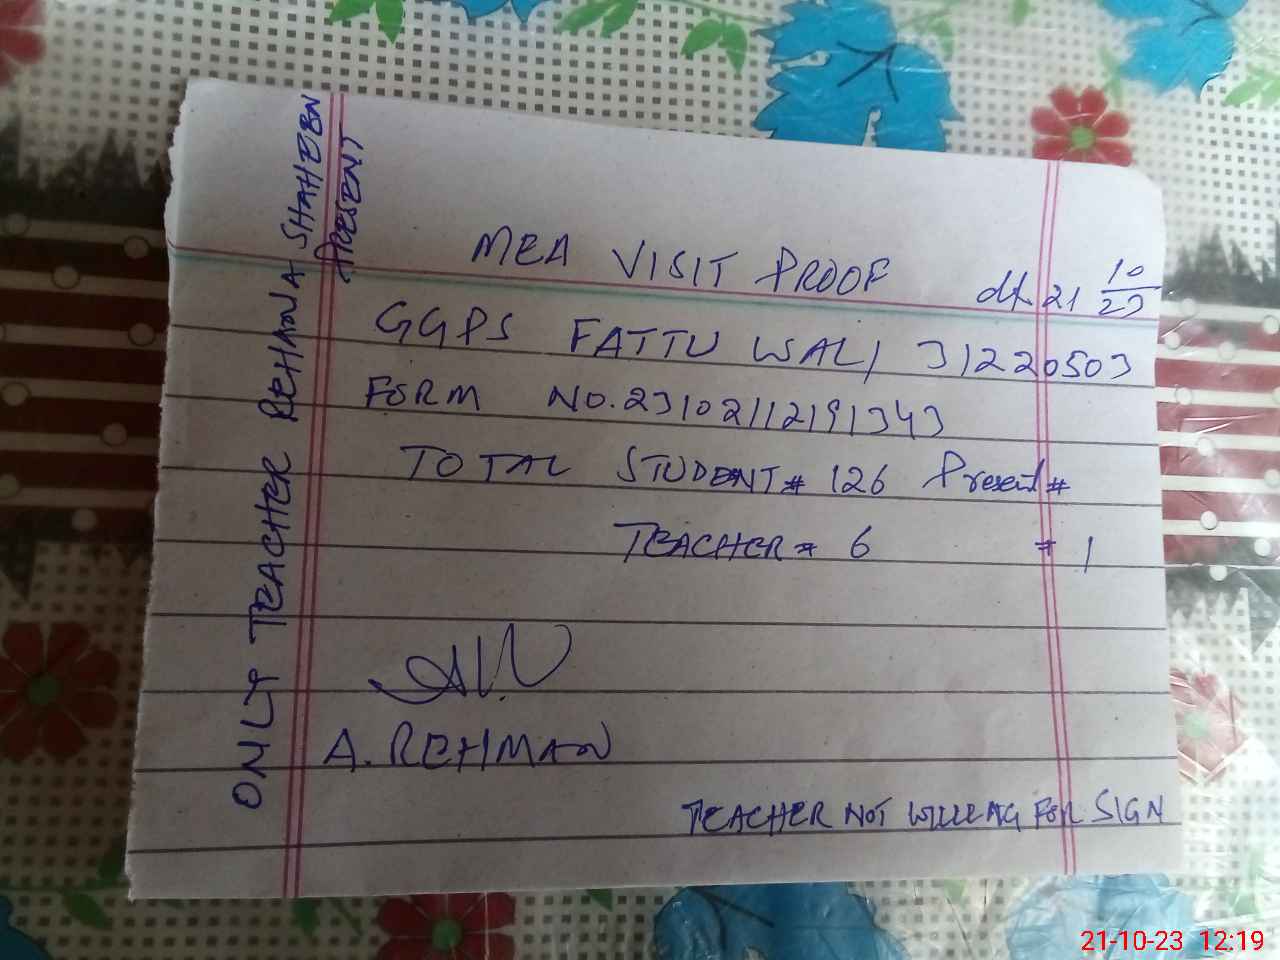 MEA VISIT PROOF dt. 21 10/23
GGPS FATTU WALI 31220503
FORM NO. 23102112191343
TOTAL STUDENT # 126 Present #
TEACHER # 6 # 1
A. REHMAN
TEACHER NOT WILLING FOR SIGN
ONLY TEACHER REHANA SHAHEEN
PRESENT
21-10-23 12:19